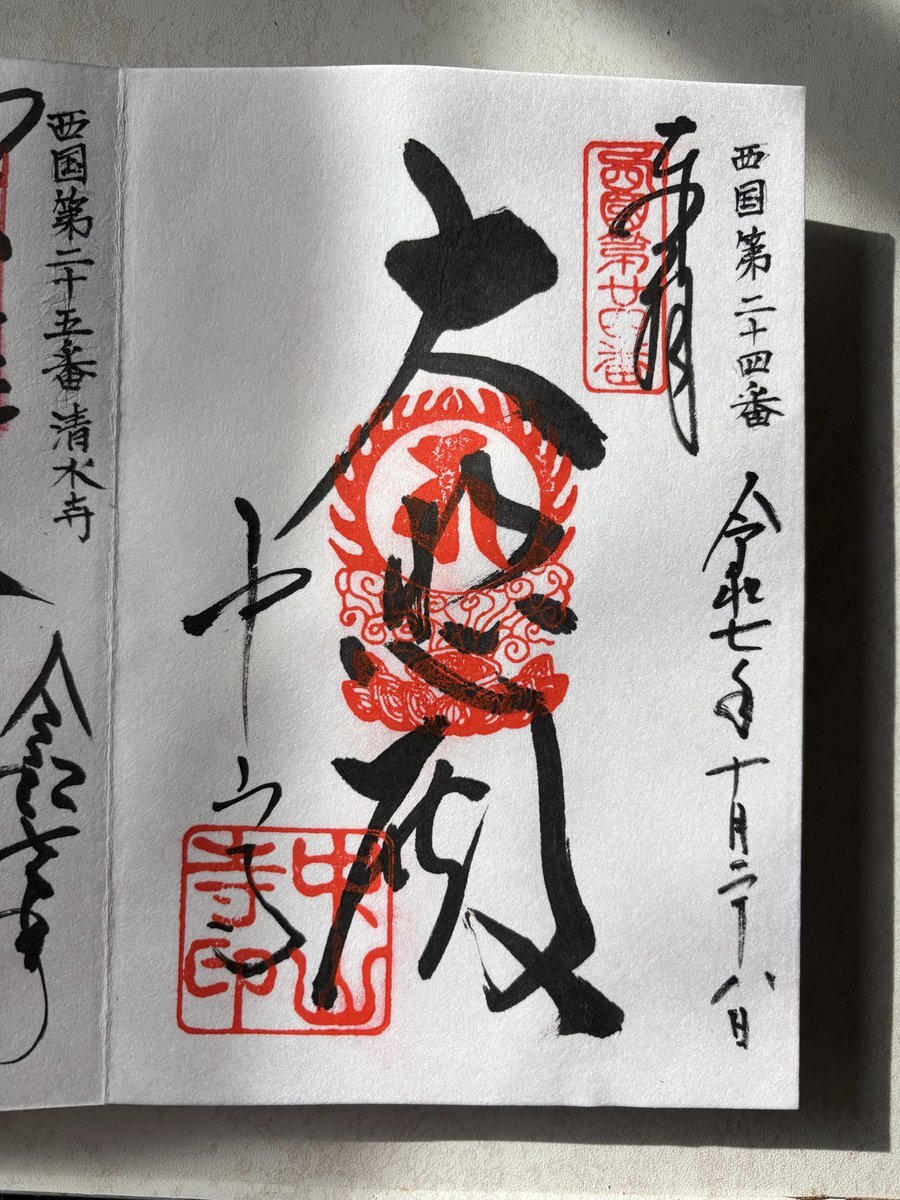 西国第二十四番
令和七年十月二十八日
奉拝
西国第廿四番
大悲殿
中山寺
中山寺印
西国第二十五番 清水寺
令和七年